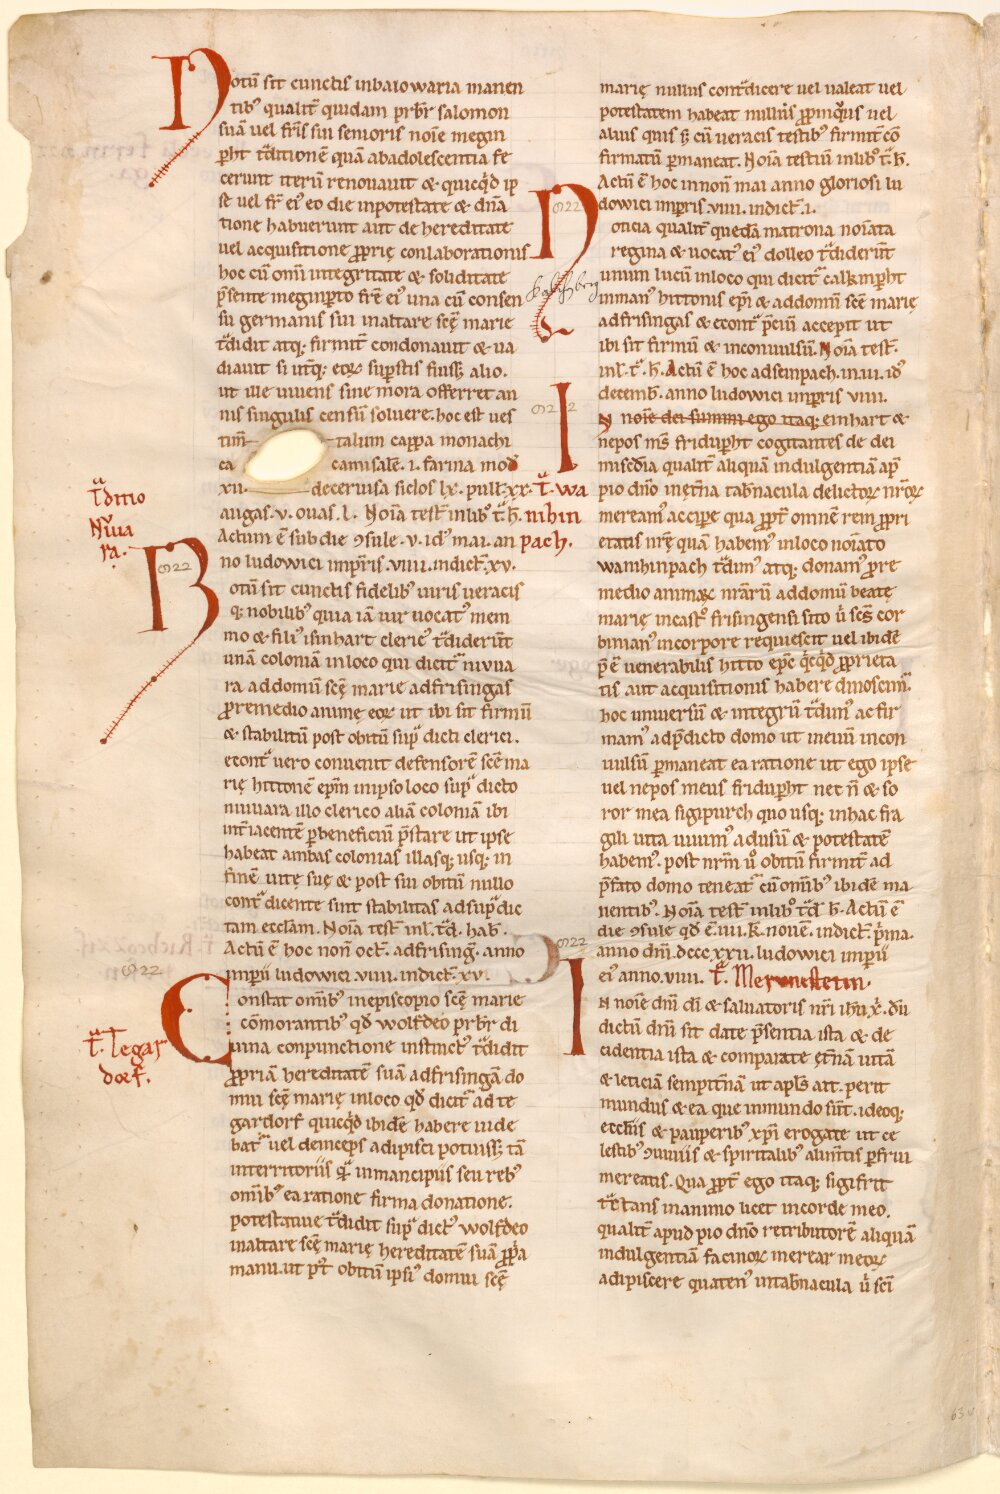 Notū sit cunctis inbaiowaria manen
tibꝰ qualit̄ quidam pr̄br̄ salomon
suā uel fr̄is sui senioris noīe megin
ꝑht t͛ditionē quā abadolescentia fe
cerunt iterū renouauit & quicq̇d ip
se uel fr̄ eiꝰ eo die inpotestate & dn̄a
tione habuerunt aut de hereditate
uel acquisitione ꝓprię conlaborationis
hoc cū om̄i integritate & soliditate
p̄sente meginꝑto fr̄e eiꝰ una cū consen
su germanis sui inaltare scę̄ marie
t͛didit atq; firmit̄ condonauit & ua
diauit si utq̄; eoꝝ suꝑstis fuiss; alio.
ut ille uiuens sine mora offerret an
nis singulis censū soluere. hoc est ues
tim̄ talium cappa monachi
ca camisalē. i. farina mod̄
xii. deceruisa siclos lx. pull. xx.
augas. v. ouas. l. Noīa test̄ inlibꝰ t̄. h̄.
Actum ē sub die ꝯsule. v. idꝰ mai. an
no ludowici imꝑris. viiii. indict̄. xv.
t͛ditio
Niuua
ra.
Notū sit cunctis fidelibꝰ uiris ueracis
q; nobilibꝰ quia iā uir uocatꝰ mem
mo & filiꝰ isinhart clericꝰ t͛diderūt
unā coloniā inloco qui dicit͛ niuua
ra addomū scę̄ marie adfrisingas
ꝓremedio animę eoꝝ ut ibi sit firmū
& stabilitū post obitū sup͛ dicti clerici.
econt͛ uero conuenit defensorē scē ma
rię hittonē ep̄m inipso loco sup͛ dicto
niuuara illo clerico aliā coloniā ibi
int͛iacentē ꝑbeneficiū p̄stare ut ipse
habeat ambas colonias illasq; usq; in
finē uitę suę & post sui obitū nullo
cont͛ dicente sint stabilitas adsup͛dic
tam ecclām. Noīa test̄ inl. t͛d. hab̄.
Actū ē hoc nōn oct̄. adfrisinḡ. anno
inp̄ii ludowici. viiii. indict̄. xv.
t͛. Tegar
dorf.
Constat om̄ibꝰ inepiscopio scę̄ marie
cōmorantibꝰ qd̄ wolfdeo pr̄br̄ di
uina conpunctione instinctꝰ t͛didit
ꝓpriā hereditatē suā adfrisingā do
mui scę̄ marię inloco qd̄ dicit͛ ad te
gardorf quicq̇d ibidē habere uide
bat͛ uel deinceps adipisci potuiss; tā
interritoriis q͛ inmancipiis seu rebꝰ
om̄ibꝰ ea ratione firma donatione.
potestatiue t͛didit sup͛ dictꝰ wolfdeo
inaltare scē marię hereditatē suā ꝓpͥa
manu. ut p̄t obitū ipsiꝰ domui scę̄
marię nullus cont͛dicere uel ualeat uel
potestatem habeat nullus ꝓpinq̇us uel
alius quis s; cū ueracis testibꝰ firmit̄ cō
firmatū ꝑmaneat. Noīa testiū inlibꝰ t͛. h̄.
Actū ē hoc innon̄ mai anno gloriosi lu
dowici imꝑris. viiii. indict̄. i.
Noticia qualit̄ quedā matrona noīata
regina & uocatꝰ eiꝰ dolleo t͛diderūt
unum lucū inloco qui dicit͛ calkinꝑht
Kalchberg
inmanꝰ hittonis ep̄i & addomū scē marię
adfrisingas & econt͛ p̄ciū accepit ut
ibi sit firmū & inconuulsū. Noīa test̄.
inl. t̄. h̄. Actū ē hoc adseinpach. in. iii. idꝰ
decemb̄. anno ludowici imꝑris viiii.
t͛. wa
nihin
pach.
IN noīe dei summi ego itaq; einhart &
nepos mꝰs friduꝑht cogitantes de dei
mis̄edia qualit̄ aliquā indulgentiā ap̄
pio dn̄o inet̄na tab̄nacula delictoꝝ nr̄oꝝ
mereamꝰ accipe qua ꝓpt̄ omnē rem ꝓpri
etatis nr̄ę quā habemꝰ inloco noīato
wanihinpach t͛dimꝰ atq; donamꝰ ꝓre
medio animaꝝ nr̄arū addomū beatę
marię incastͦ frisingensi sito u͛ scs̄ cor
binianꝰ incorpore requiescit uel ibidē
p̄ē uenerabilis hitto epc̄ q̇cq̇d ꝓprieta
tis aut acquisitionis habere dinoscim͛.
hoc uniuersū & integrū t͛dimꝰ ac fir
mamꝰ adp̄dicto domo ut ineuū incon
uulsū ꝑmaneat ea ratione ut ego ipse
uel nepos meus friduꝑht nec n̄ & so
ror mea sigipurch quo usq; inhac fra
gili uita uiuimꝰ adusū & potestatē
habemꝰ. post nr̄m uͦ obitū firmit̄ ad
p̄fato domo teneat͛ cū om̄ibꝰ ibidē ma
nentibꝰ. Noīa test̄ inlibꝰ t͛d h̄. Actū ē
die ꝯsule qd̄ ē. iiii. K. nouē. indict̄. p͛ma.
anno dn̄i. dccc. xxii. ludowici imp̄ii
eiꝰ anno. viiii. t͛. Merunstein.
IN noīe dn̄i di̅ & saluatoris nr̄i ihū x̄. dū
dictū dn̄i sit date p̄sentia ista & de
cidentia ista & comparate et̄nā uitā
& leticiā sempit̄nā ut apl̄s ait. perit
mundus & ea que inmundo sūt. ideoq;
eccl̄iis & pauperibꝰ xp̄i erogate ut ce
lestibꝰ ꝯuiuiis & spiritalibꝰ alim̄tis ꝑfrui
mereatis. Qua ꝓpt̄ ego itaq; sigifrit
t͛ctans inanimo licet incorde meo.
qualit̄ apud pio dn̄o retributorē aliquā
indulgentiā facinoꝝ merear meoꝝ
adipiscere quatenꝰ intab̄nacula u͛ sc̄i
822
822
822
822
822
822
63v